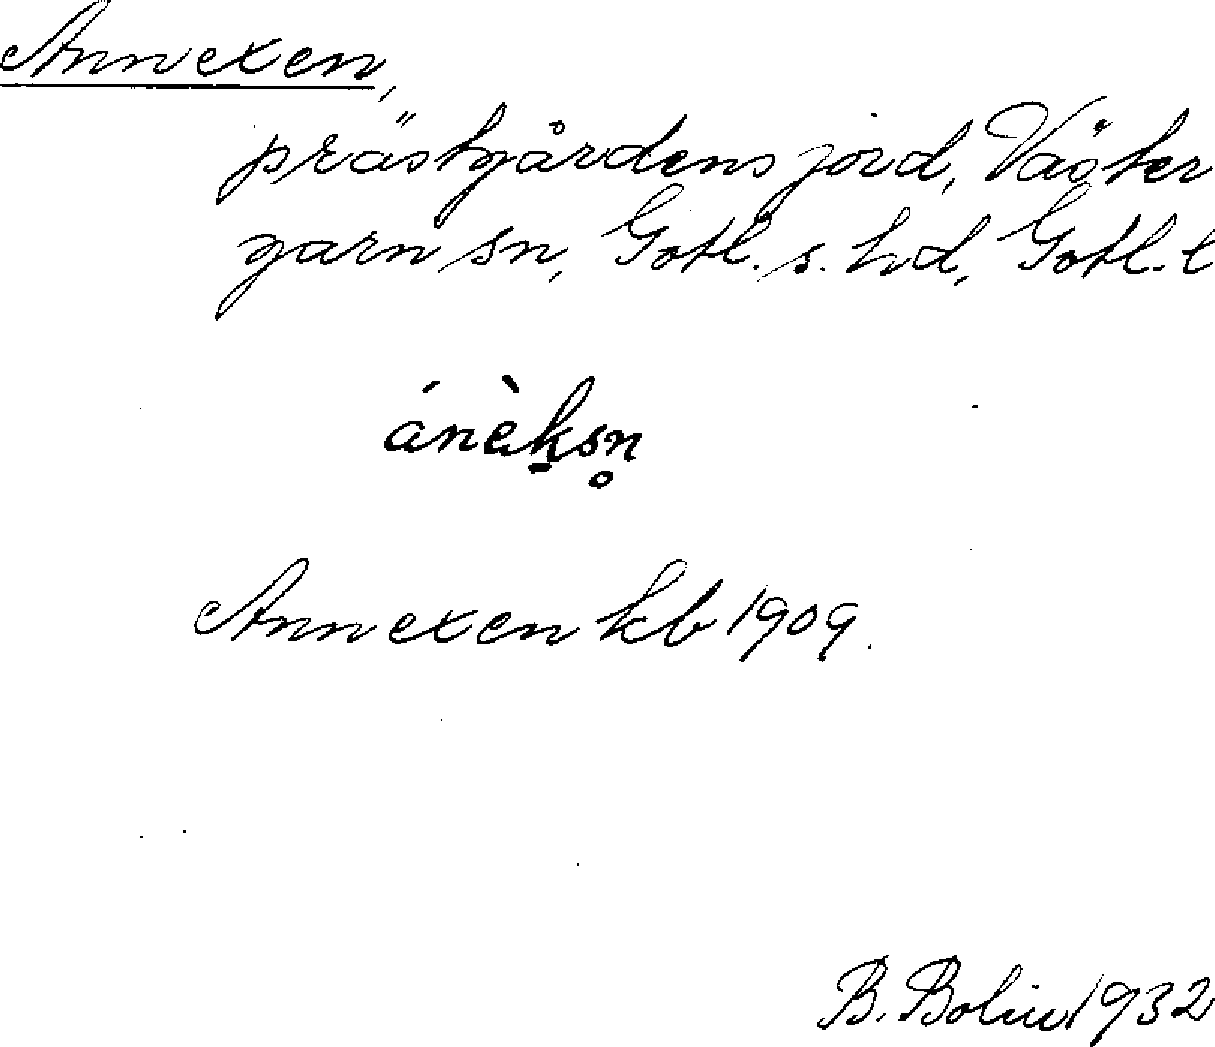 Annexen,
prästgårdens jord, Väster
garn sn, Gotl. s. hd, Gotl. l
ánèk̠sn̥
Annexen kb 1909.
B. Bolin 1932